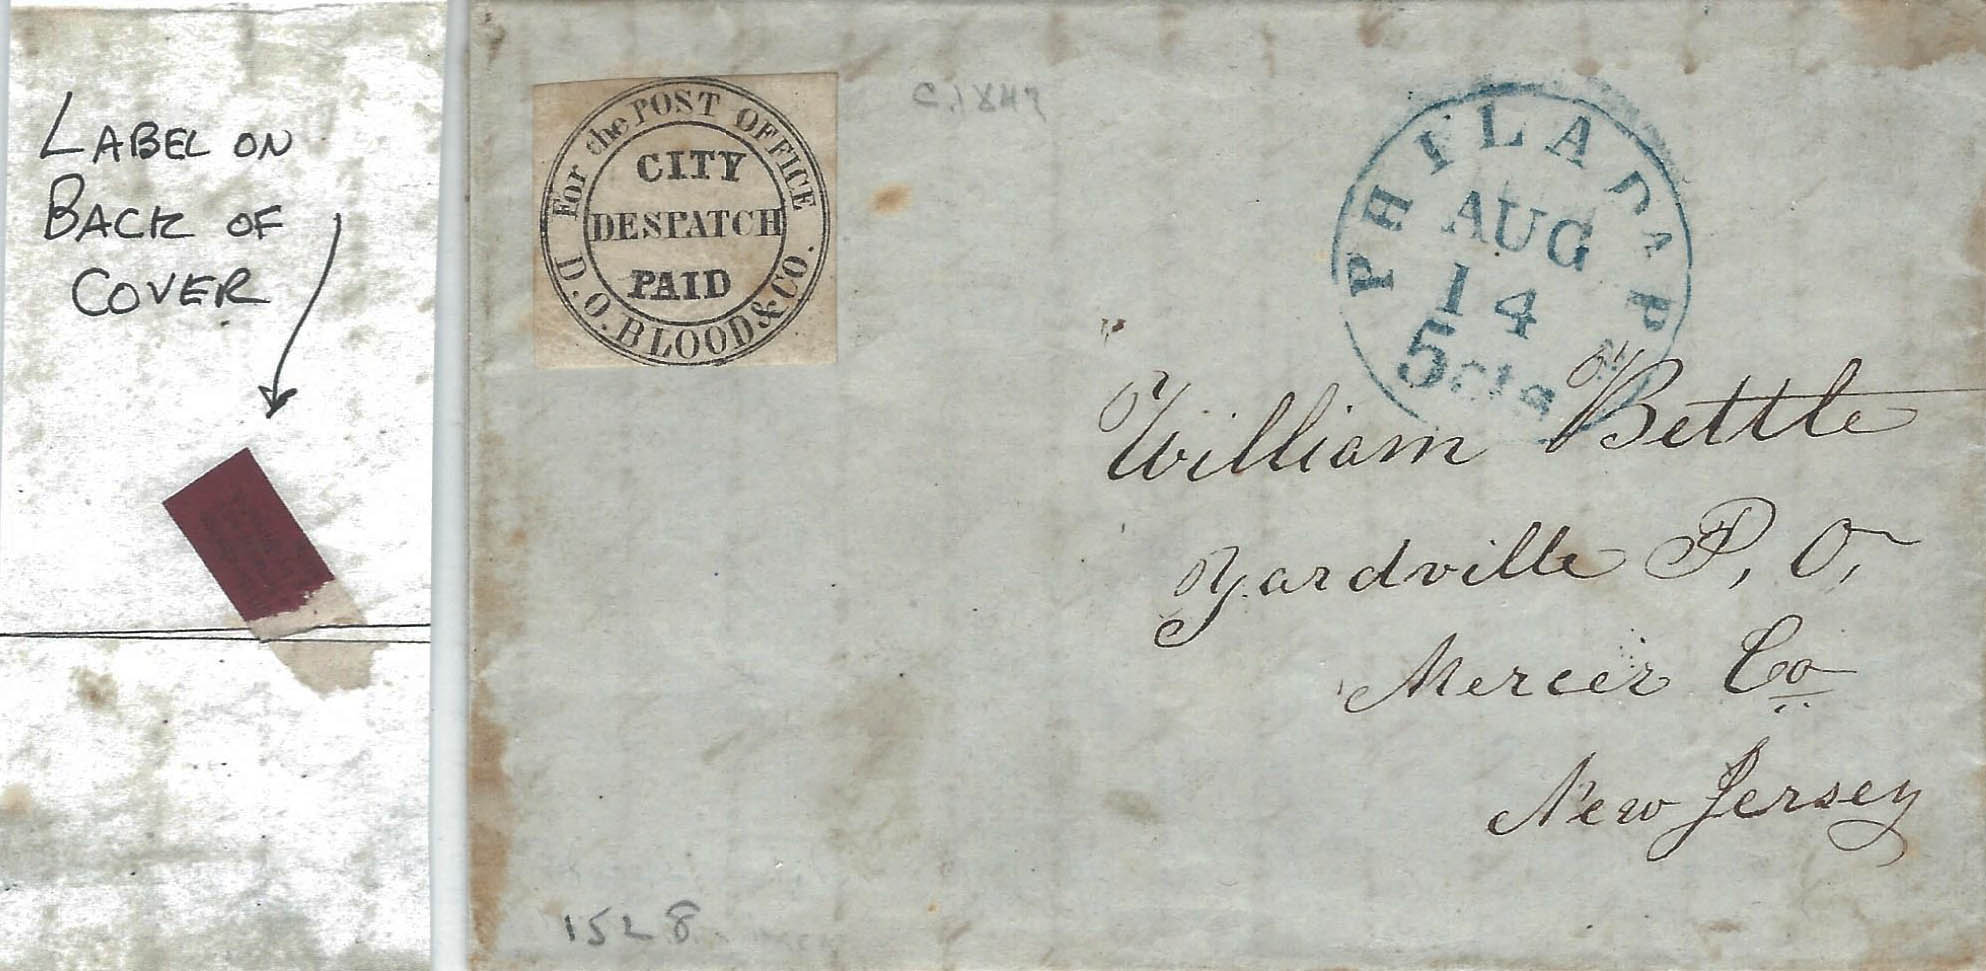 LABEL ON
BACK OF
COVER
For the POST OFFICE
CITY
DESPATCH
PAID
D.O. BLOOD & CO.
C. 1847
PHILADA PA
AUG
14
5cts
William Bettle
Yardville P. O,
Mercer Co
New Jersey
1528